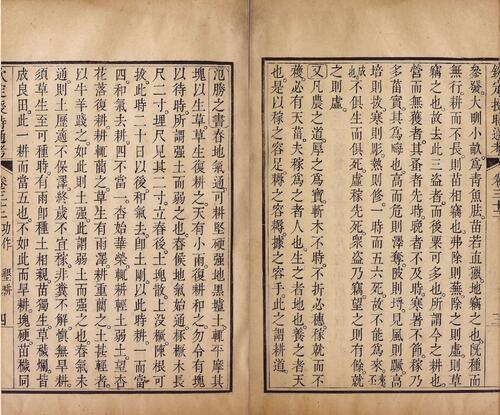 參發大甽小畝為青魚胠苗若直獵地竊之也既種而
無行耕而不長則苗相竊也弗除則蕪除之則虛草
竊之也故去此三盜者而後粟可多也所謂今之耕也
營而無獲者其蚤者先時晚者不及時寒暑不節稼乃
多菑實其為晦也高而危則澤奪陂則埒見風則蹶高
培則拔寒則彫熱則修一時而五六死故不能為來
不俱生而俱死虛稼先死眾盜乃竊望之則有餘就
之則虛
又凡農之道厚之為寶斬木不時不折必穗稼就而不
穫必有天菑夫稼為之者人也生之者地也養之者天
也是以稼之容足耨之容耨據之容手此之謂耕道
氾勝之書春地氣通可耕堅硬強地黑壚土輒平摩其
塊以生草草生復耕之天有小雨復耕和之勿令有塊
以待時所謂強土而弱之也春候地氣始通椓橛木長
尺二寸埋尺見其二寸立春後土塊散上沒橛陳根可
拔此時二十日以後和氣去即土剛以此時耕一而當
四和氣去耕四不當一杏始華榮輒耕輕土弱土望杏
花落復耕耕輒藺之草生有雨澤耕重藺之土甚輕者
以牛羊踐之如此則土強此謂弱土而強之也春氣未
通則土歷適不保澤終歲不宜稼非糞不解慎無旱耕
須草生至可種時有雨即種土相親苗獨生草穢爛皆
成良田此一耕而當五也不如此而旱耕塊硬苗穢同
欽定授時通考 卷三十二 功作 墾耕 四